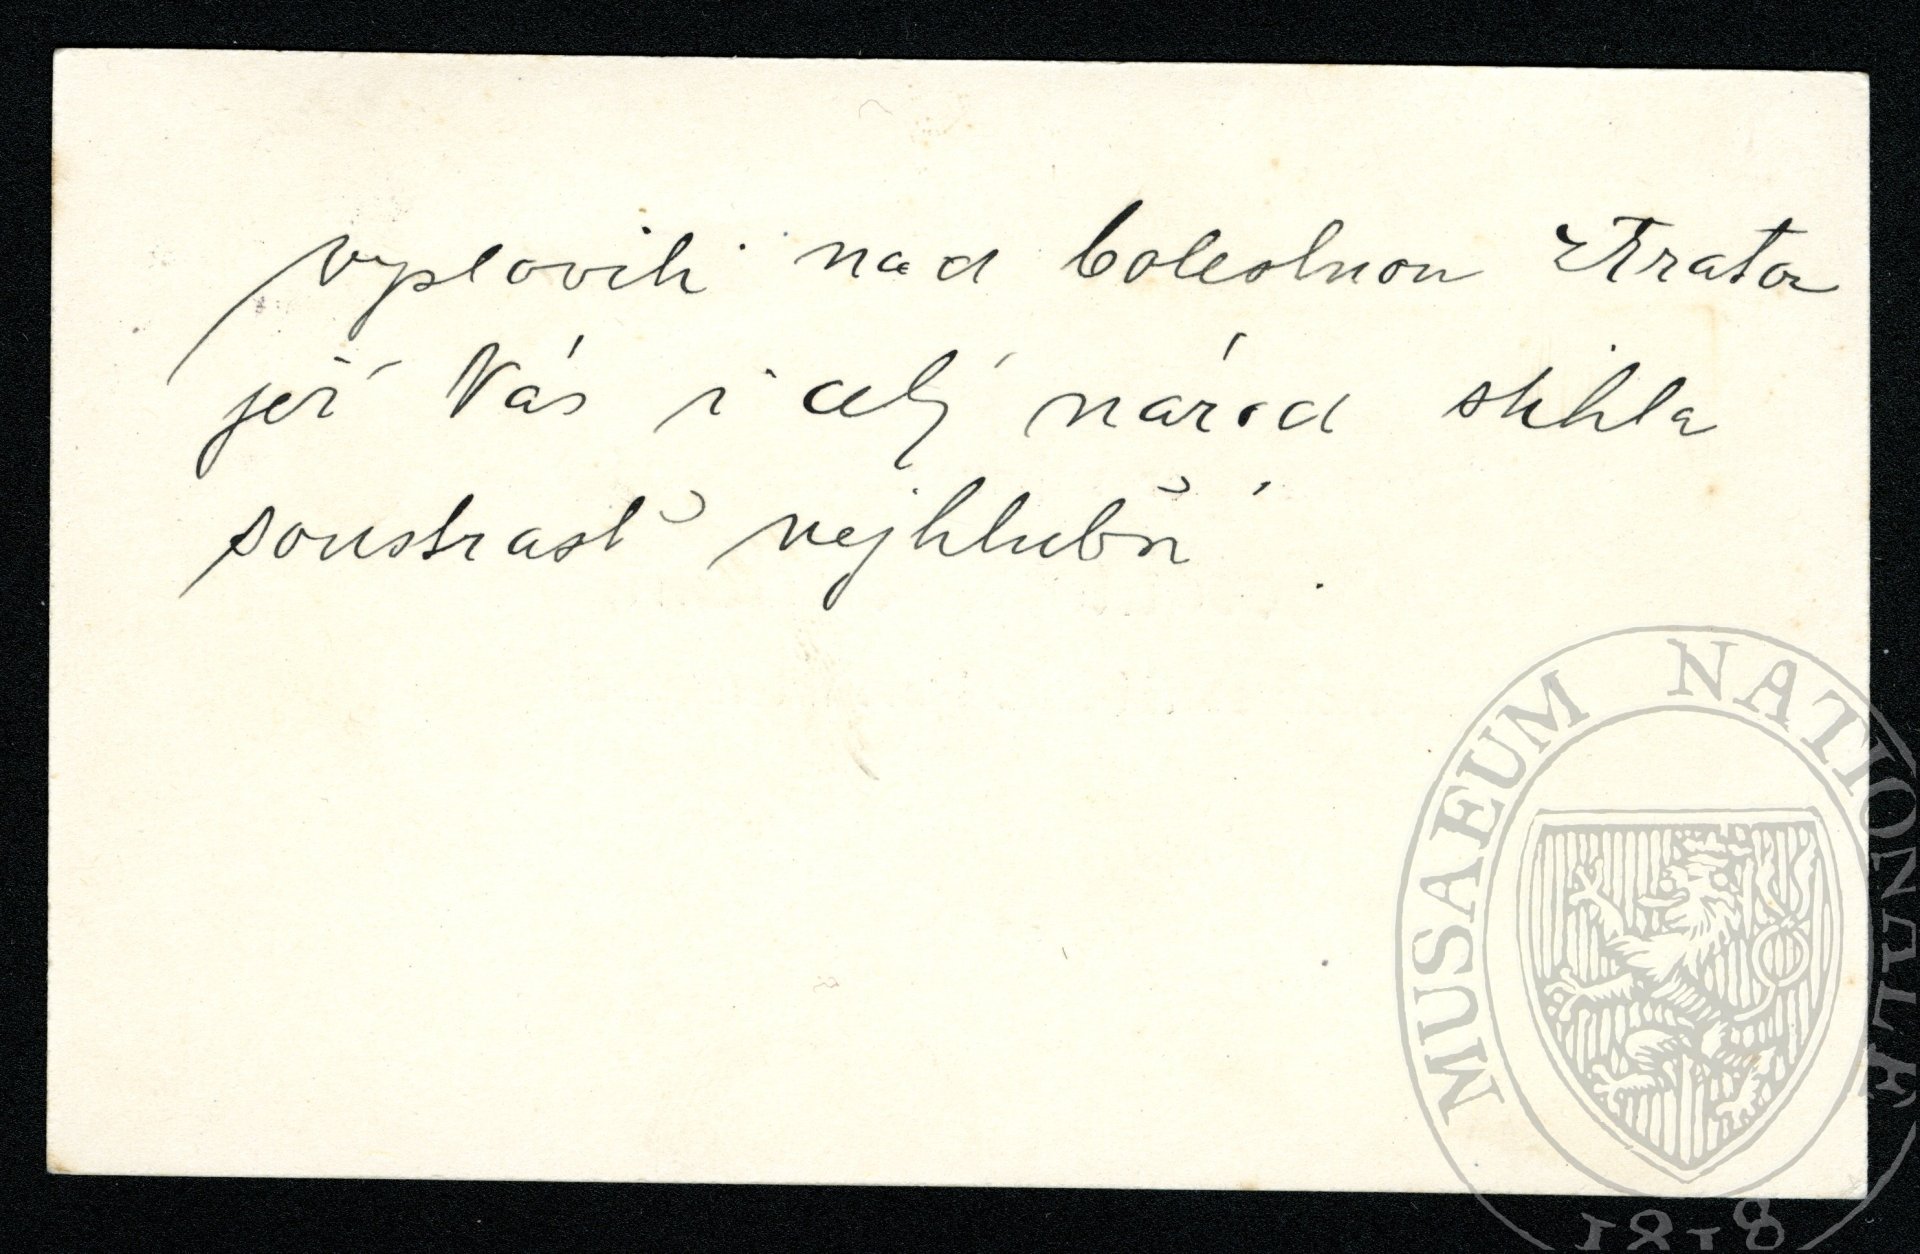 vyslovili nad bolestnou ztrátou
jež Vás i celý národ stihla
soustrast nejhlubší.
MUSAEUM NATIONALE
1818